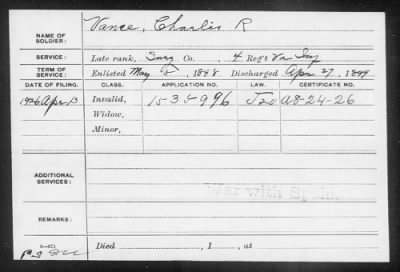 NAME OF SOLDIER: Vance, Charles R
SERVICE: Late rank, Surg Co. , 4 Reg't Va Inf
TERM OF SERVICE: Enlisted May , 1898 Discharged Apr 27, 1899
DATE OF FILING. CLASS. APPLICATION NO. LAW. CERTIFICATE NO.
1926 Apr 13 Invalid, 1535996 J20 A8-24-26
Widow,
Minor,
ADDITIONAL SERVICES:
War with Spain.
REMARKS:
Died , 1 , at